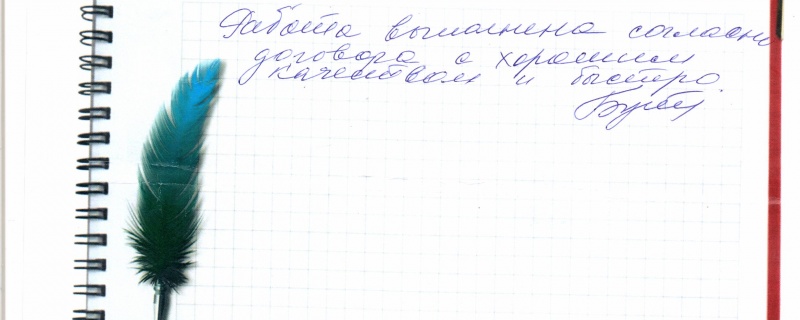 Работа выполнена согласно
договора с хорошим
качеством и быстро.